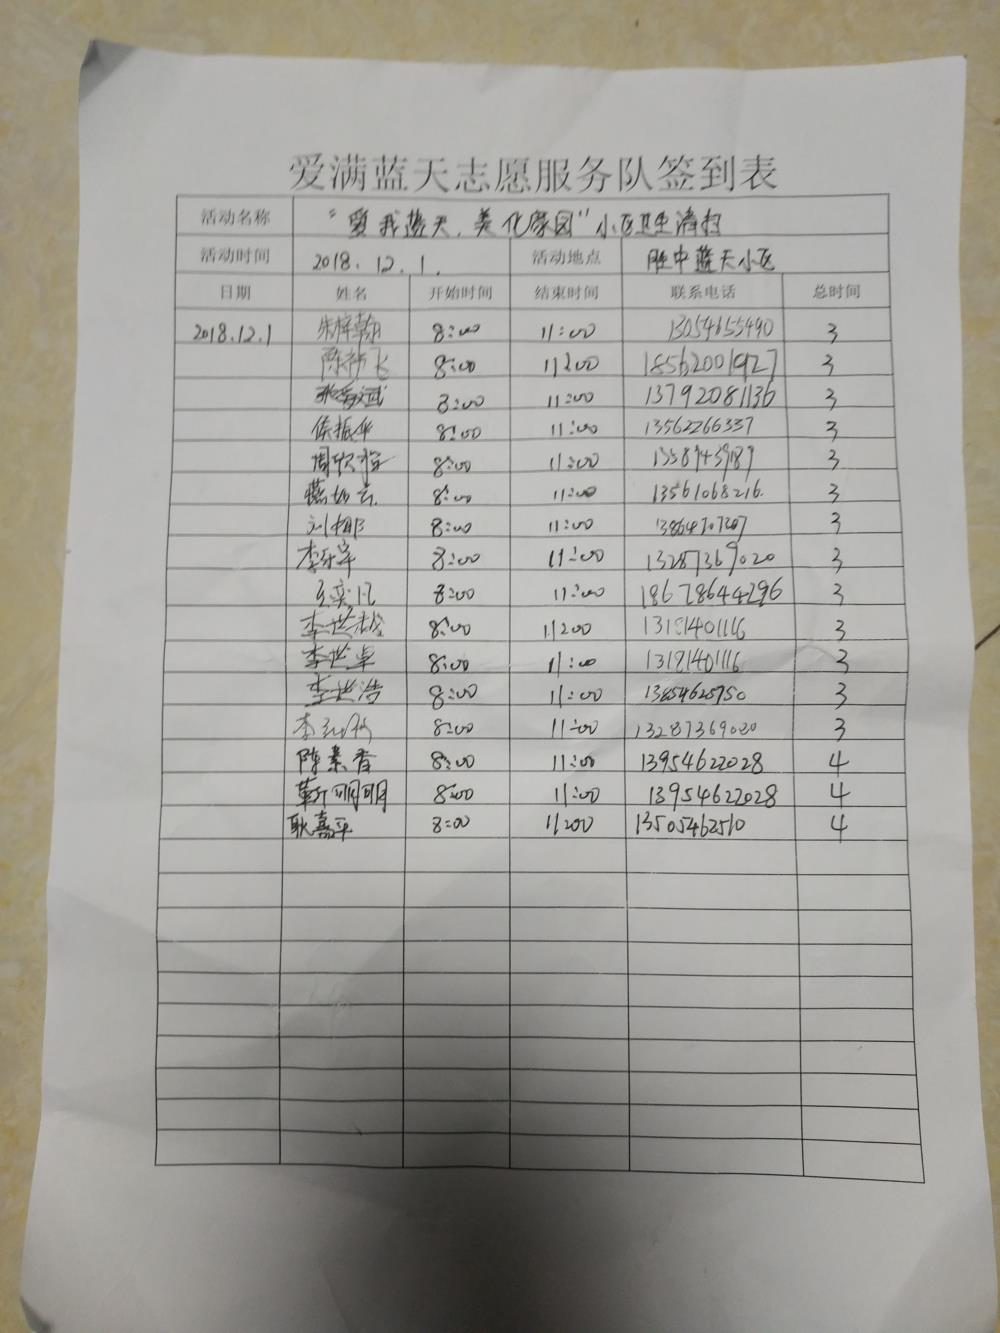 爱满蓝天志愿服务队签到表
活动名称 "爱我蓝天、美化家园"小区卫生清扫
活动时间 2018.12.1. 活动地点 胜中蓝天小区
日期 姓名 开始时间 结束时间 联系电话 总时间
2018.12.1 朱梓翰 8:00 11:00 13054655490 3
8:00 11:00 18562001927 3
8:00 11:00 13792081136 3
侯振华 8:00 11:00 13562266337 3
8:00 11:00 3
8:00 11:00 13561068216. 3
8:00 11:00 3
8:00 11:00 13287369020 3
8:00 11:00 18678644296 3
李世 8:00 11:00 13181401116 3
李世卓 8:00 11:00 13181401116 3
李世浩 8:00 11:00 3
李 8:00 11:00 13287369020 3
陈素香 8:00 11:00 13954622028 4
靳明明 8:00 11:00 13954622028 4
耿嘉平 8:00 11:00 13505462510 4